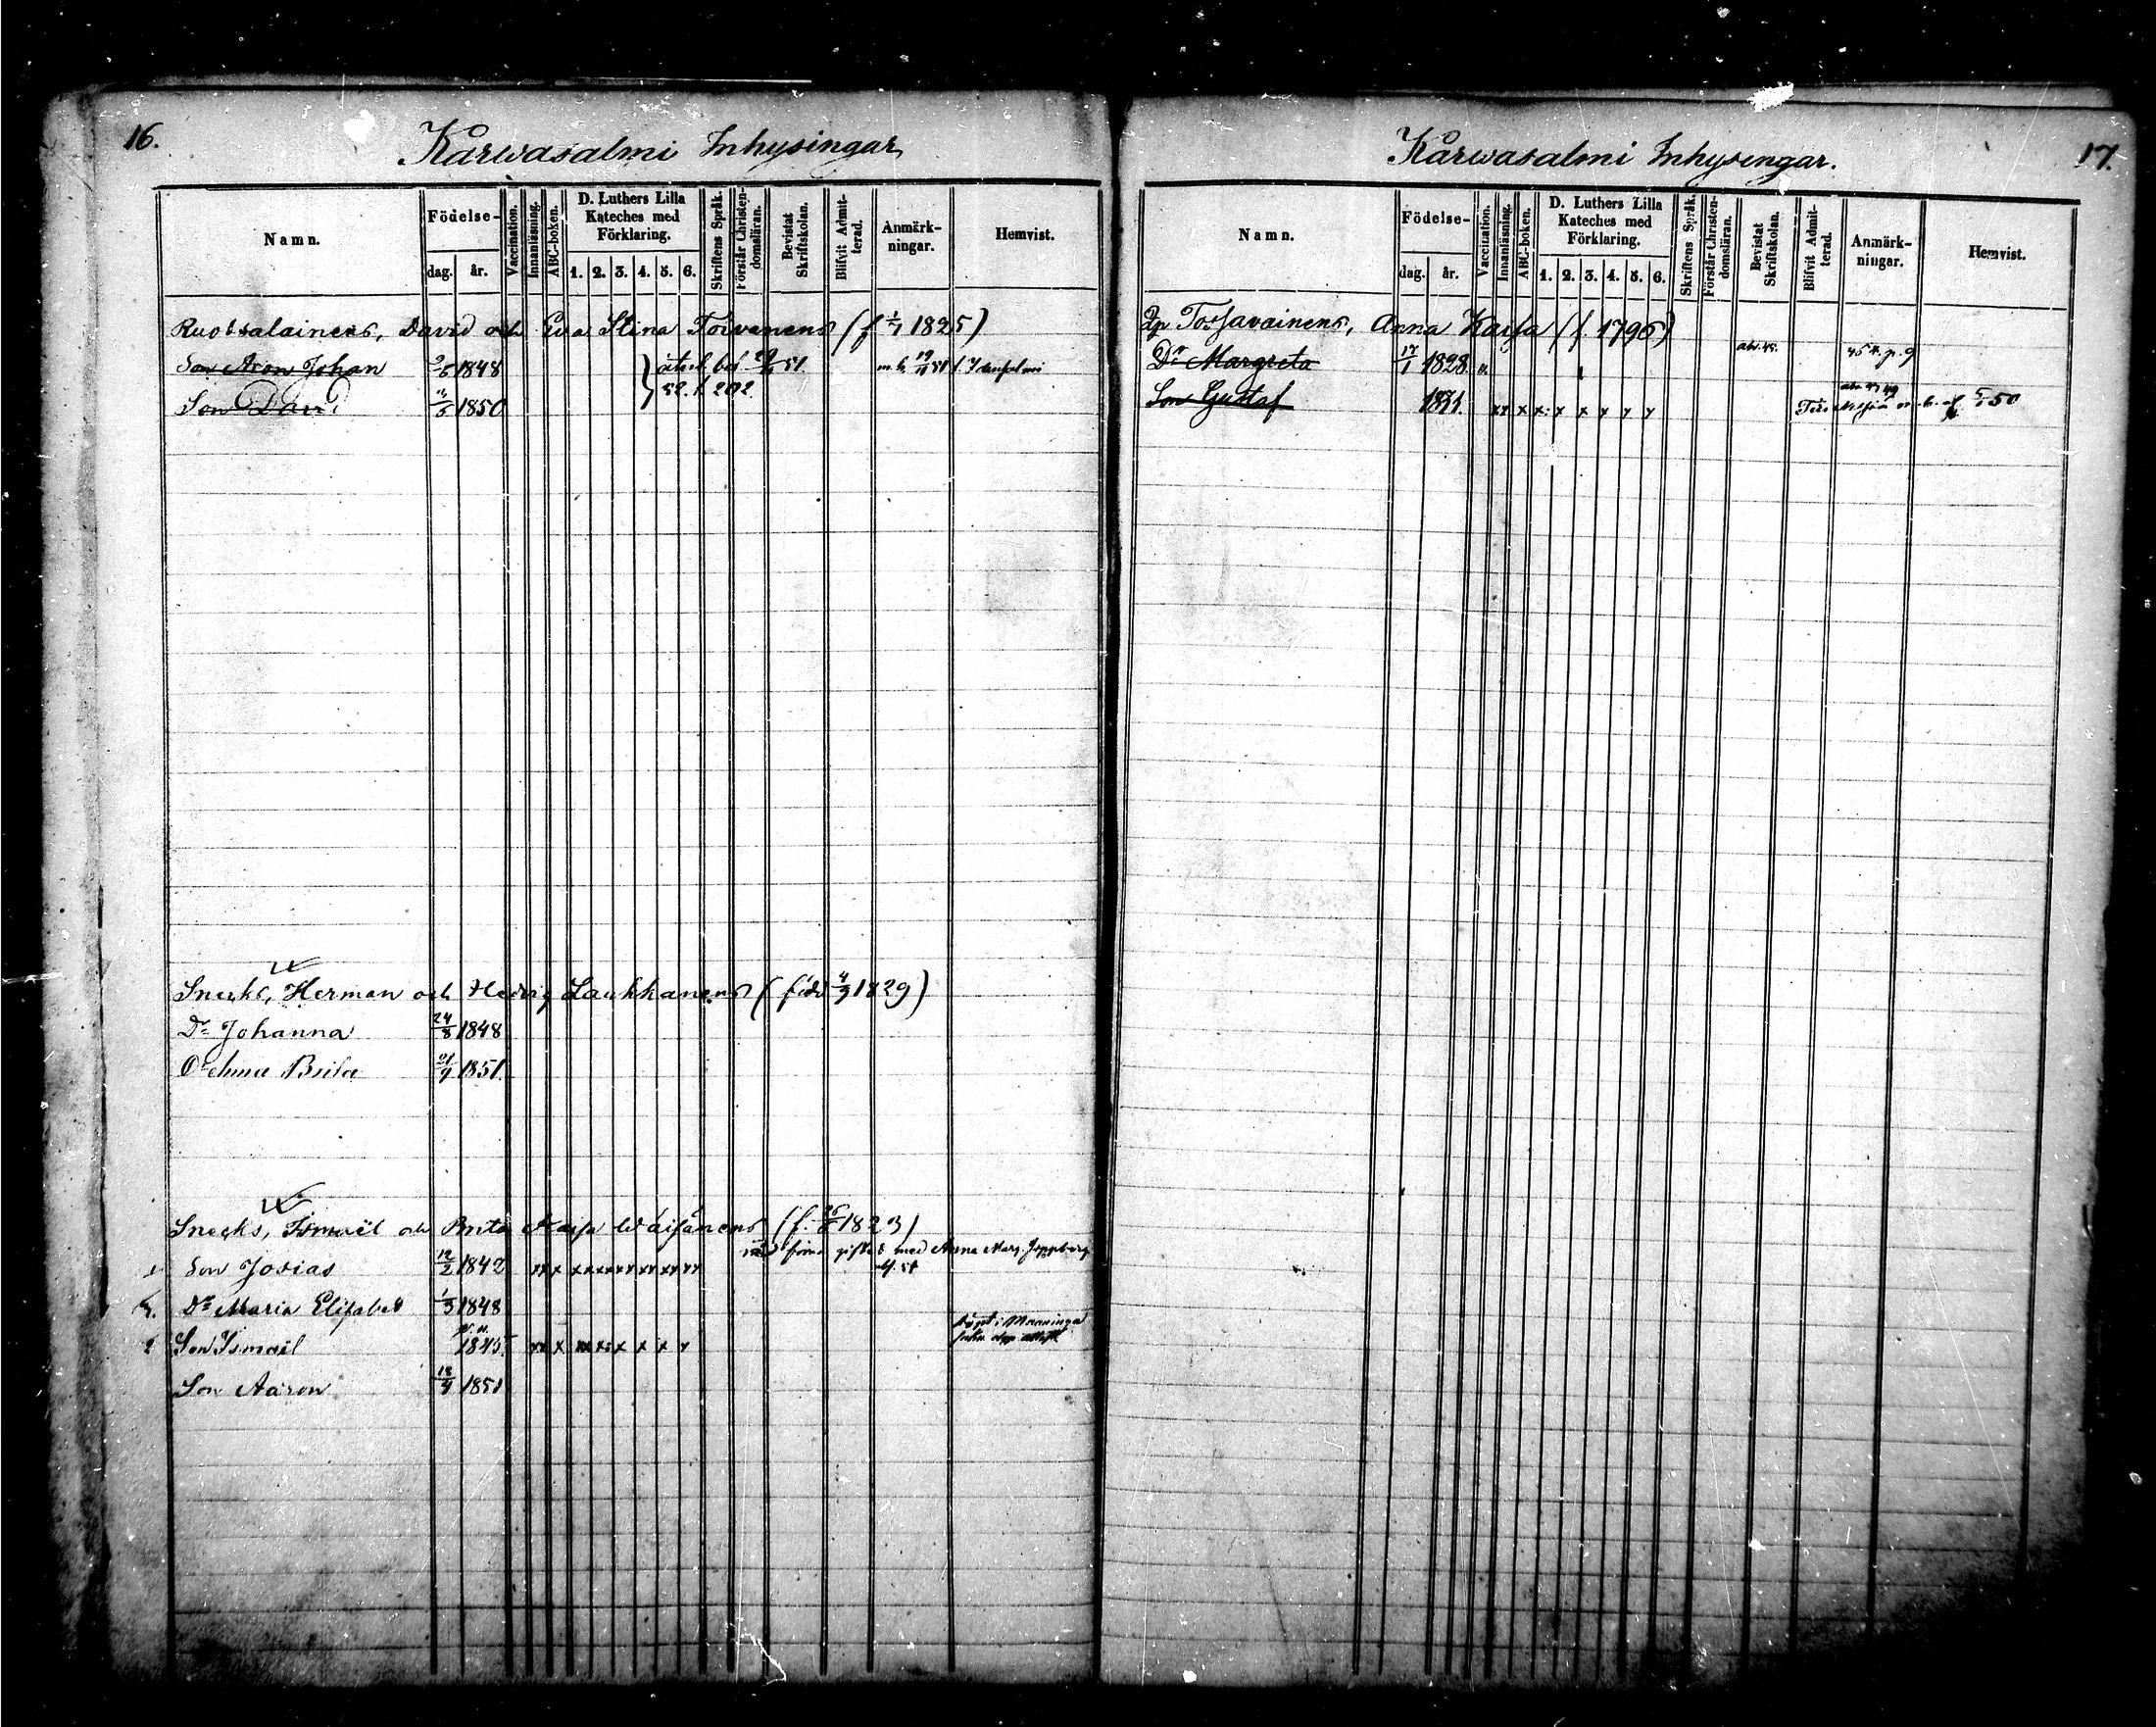 16.
Kärwasalmi Inhysingar
Namn.
Födelse-
dag. år.
Vaccination.
Innanläsning.
ABC-boken.
D. Luthers Lilla
Kateches med
Förklaring.
1. 2. 3. 4. 5. 6.
Skriftens Språk.
Förstår Christen-
domsläran.
Bevistat
Skriftskolan.
Blifvit Admit-
terad.
Anmärk-
ningar.
Hemvist.
Ruotsalainens, David och Eva Stina Toivanens (f 1/1 1825)
Son Aron Johan 1848 51
Son David 1850 52. f. 202
Snecks, Herman och Hedvig Laukkanens (född 4/9 1829)
Dr Johanna 24/8 1848
Dr Anna Brita 21/9 1851.
Snecks, Ismaël och Brita Kaisa Wäisänens (f. 1823)
gifted med Anna Marg.
Son Josias 12/2 1842 xx x
Dr Maria Elisabet 1/3 1848
i Maaninga
2 Son Ismail 1845 x x x x
Son Aaron 18/9 1851
Kärwasalmi Inhysingar.
17.
Namn.
Födelse-
dag. år.
Vaccination.
Innanläsning.
ABC-boken.
D. Luthers Lilla
Kateches med
Förklaring.
1. 2. 3. 4. 5. 6.
Skriftens Språk.
Förstår Christen-
domsläran.
Bevistat
Skriftskolan.
Blifvit Admit-
terad.
Anmärk-
ningar.
Hemvist.
Tossavainens, Anna Kaisa (f 1796)
Dr Margreta 17/1 1828 p. 9
Son Gustaf xx x x x x 50